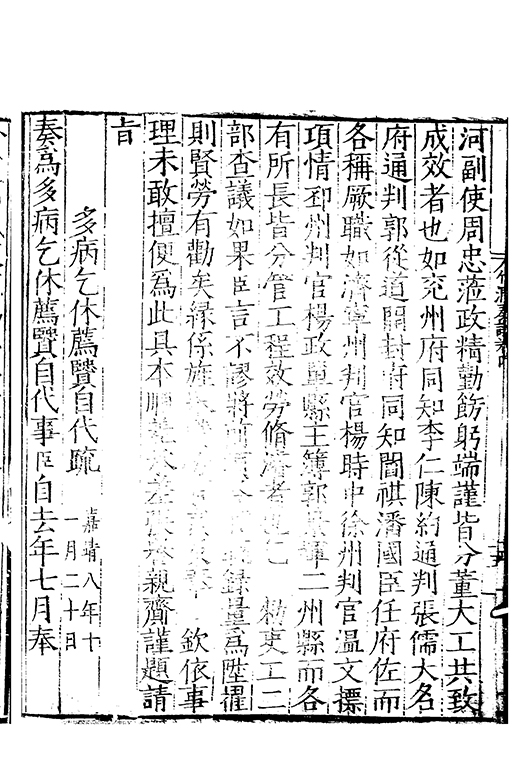 河副使周忠蒞政精勤飭躬端謹皆分董大工共致
成效者也如兖州府同知李仁陳約通判張儒大名
府通判郭從道開封府同知閻祺潘國臣任府佐而
各稱厥職如濟寧州判官楊時中徐州判官温文摽
項情邳州判官楊政單縣主簿郭 二州縣而各
有所長皆分管工程效勞脩濬者也乞 勑吏工二
部查議如果臣言不謬將前 錄量爲陞擢
則賢勞有勸矣緣係旌 欽依事
理未敢擅便爲此具本順差 親齎謹題請
旨
多病乞休薦賢自代疏 嘉靖八年十
一月二十日
奏爲多病乞休薦賢自代事臣自去年七月奉